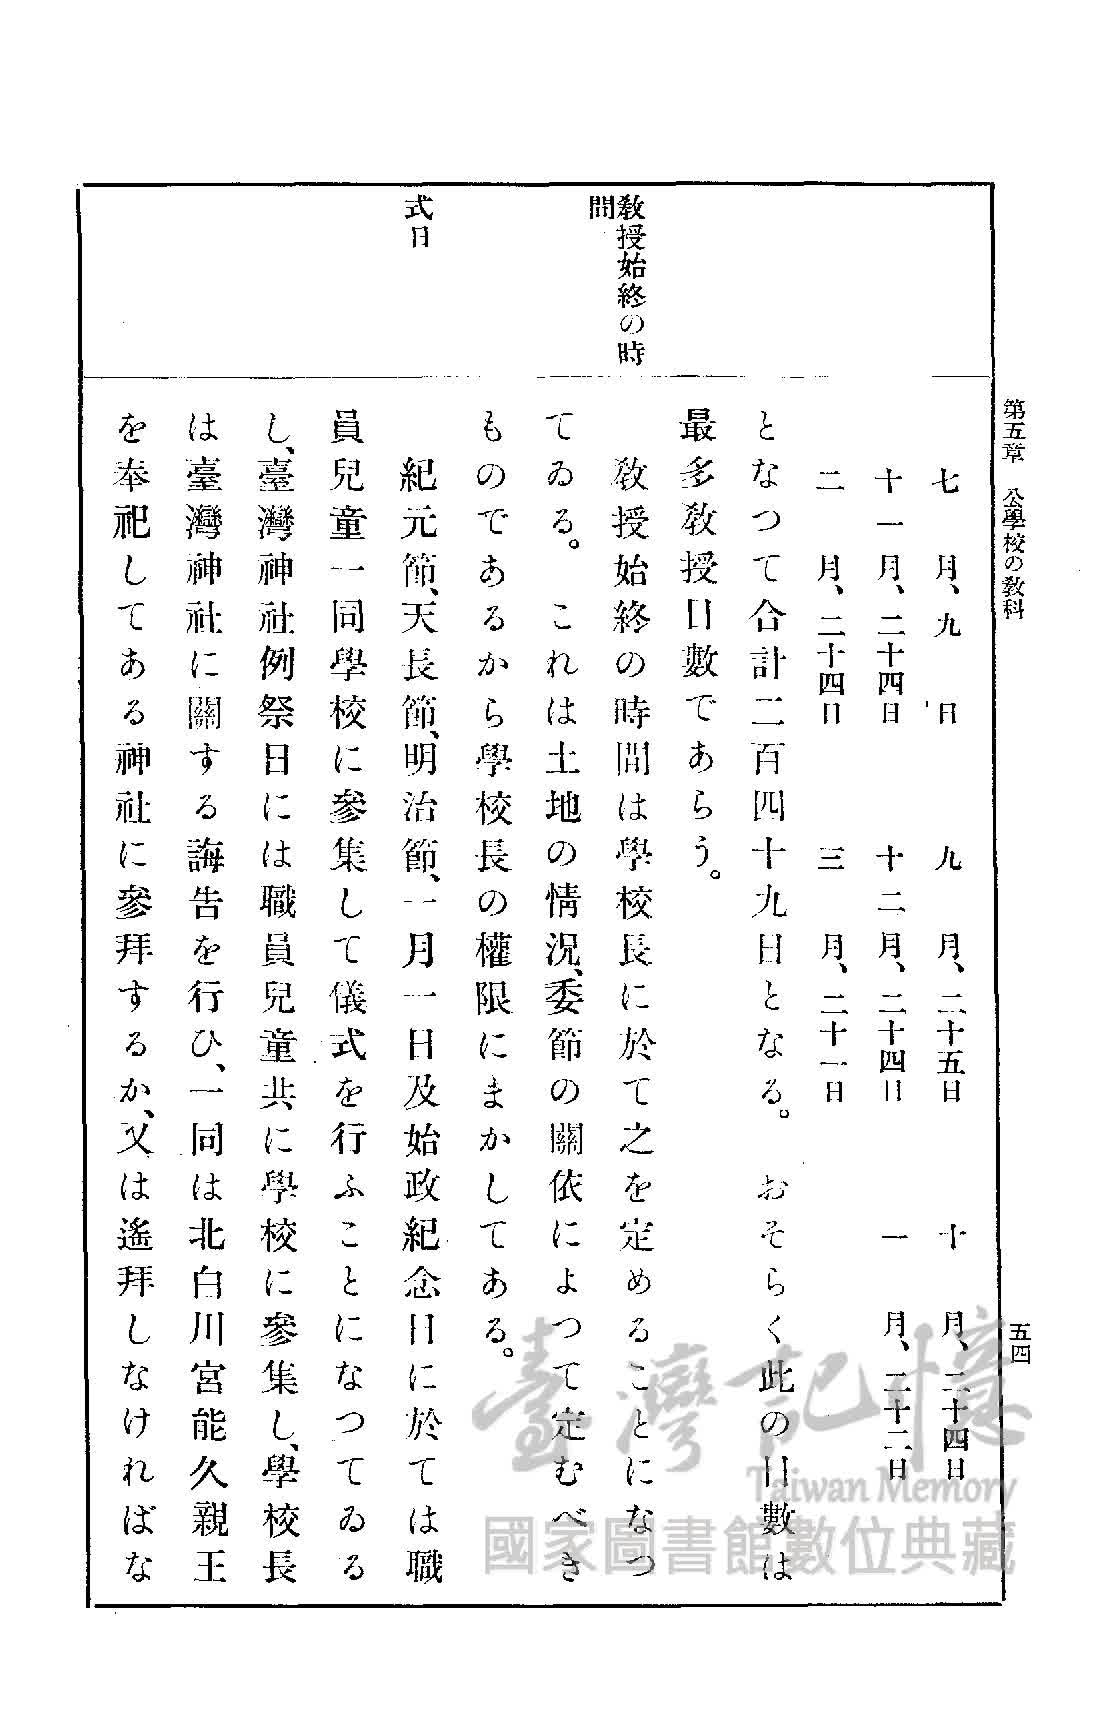 第五章　公學校の教科
五四
七月、九日　九月、二十五日　十月、二十四日
十一月、二十四日　十二月、二十四日　一月、二十二日
二月、二十四日　三月、二十一日
となつて合計二百四十九日となる。おそらく此の日數は
最多教授日數であらう。
教授始終の時
間
教授始終の時間は學校長に於て之を定めることになつ
てゐる。これは土地の情況、委節の關依によつて定むべき
ものであるから學校長の權限にまかしてある。
式日
紀元節、天長節、明治節、一月一日及始政紀念日に於ては職
員兒童一同學校に參集して儀式を行ふことになつてゐる
し、臺灣神社例祭日には職員兒童共に學校に參集し、學校長
は臺灣神社に關する誨告を行ひ、一同は北白川宮能久親王
を奉祀してある神社に參拜するか、又は遙拜しなければな
臺灣記憶
Taiwan Memory
國家圖書館數位典藏